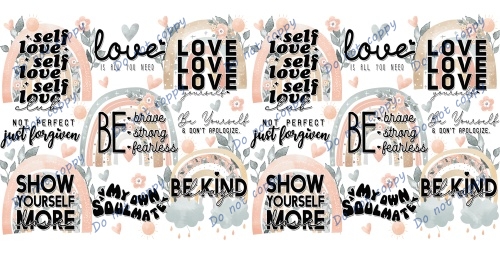 self
love
self
love
self
love
self
love
love
IS ALL YOU NEED
LOVE
LOVE
LOVE
yourself
NOT PERFECT
just forgiven
BE
brave
strong
fearless
Be Yourself
& DON'T APOLOGIZE.
SHOW
YOURSELF
MORE
MY OWN
SOULMATE
BE KIND
self
love
self
love
self
love
self
love
love
IS ALL YOU NEED
LOVE
LOVE
LOVE
yourself
NOT PERFECT
just forgiven
BE
brave
strong
fearless
Be Yourself
& DON'T APOLOGIZE.
SHOW
YOURSELF
MORE
MY OWN
SOULMATE
BE KIND
Do not copy
Do not copy
Do not copy
Do not copy